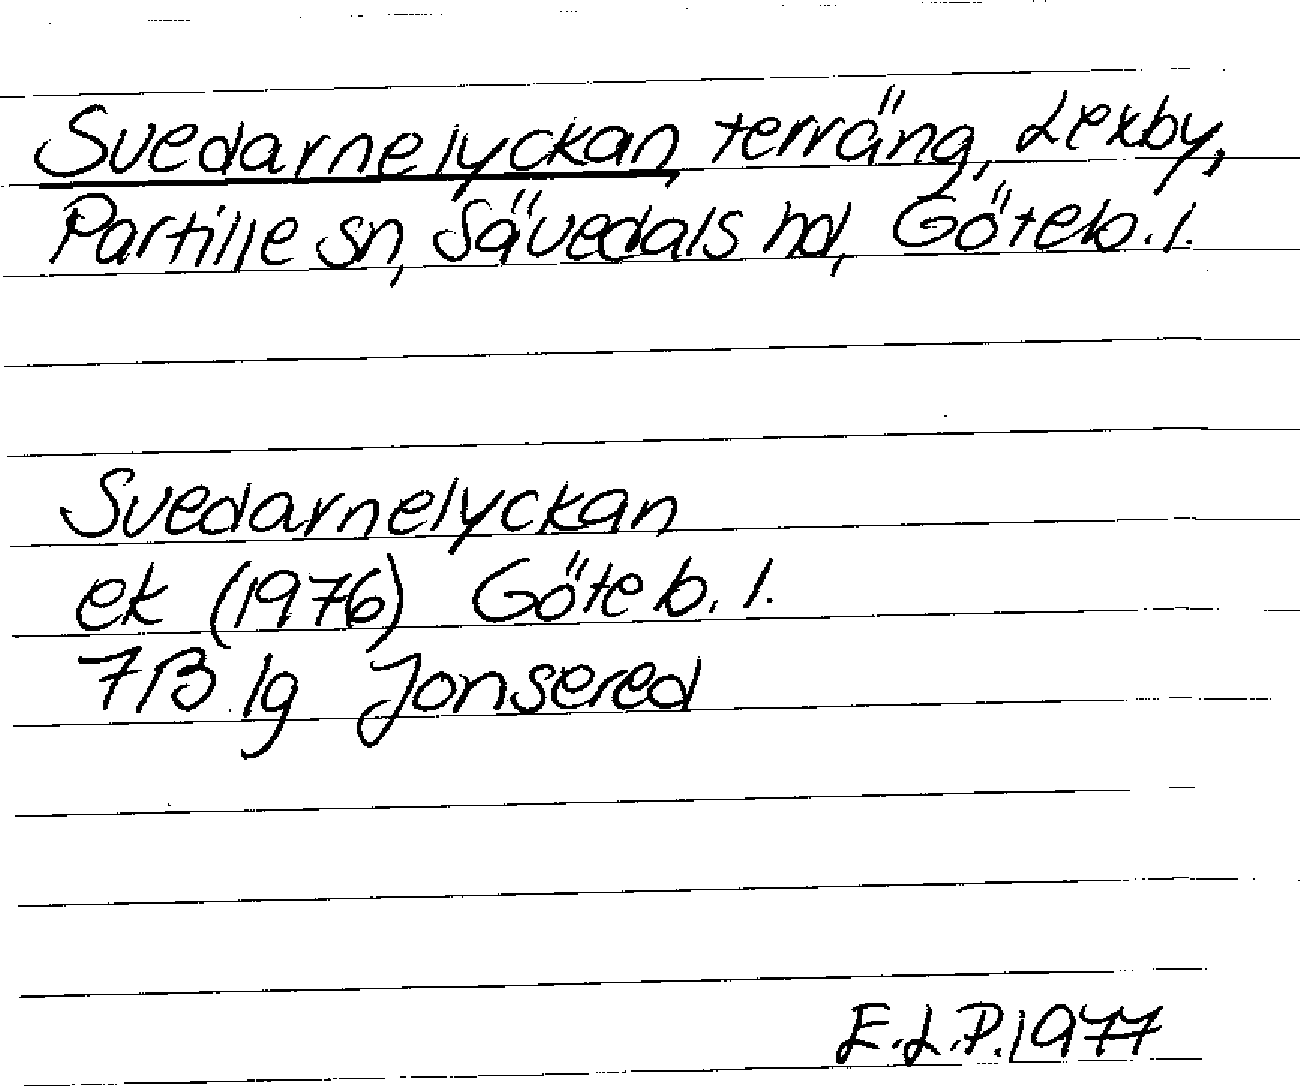 Svedarnelyckan, terräng, Lexby,
Partille sn, Sävedals hd, Göteb. l.
Svedarnelyckan
ek (1976) Göteb. l.
7B 1g Jonsered
E.L.P. 1977